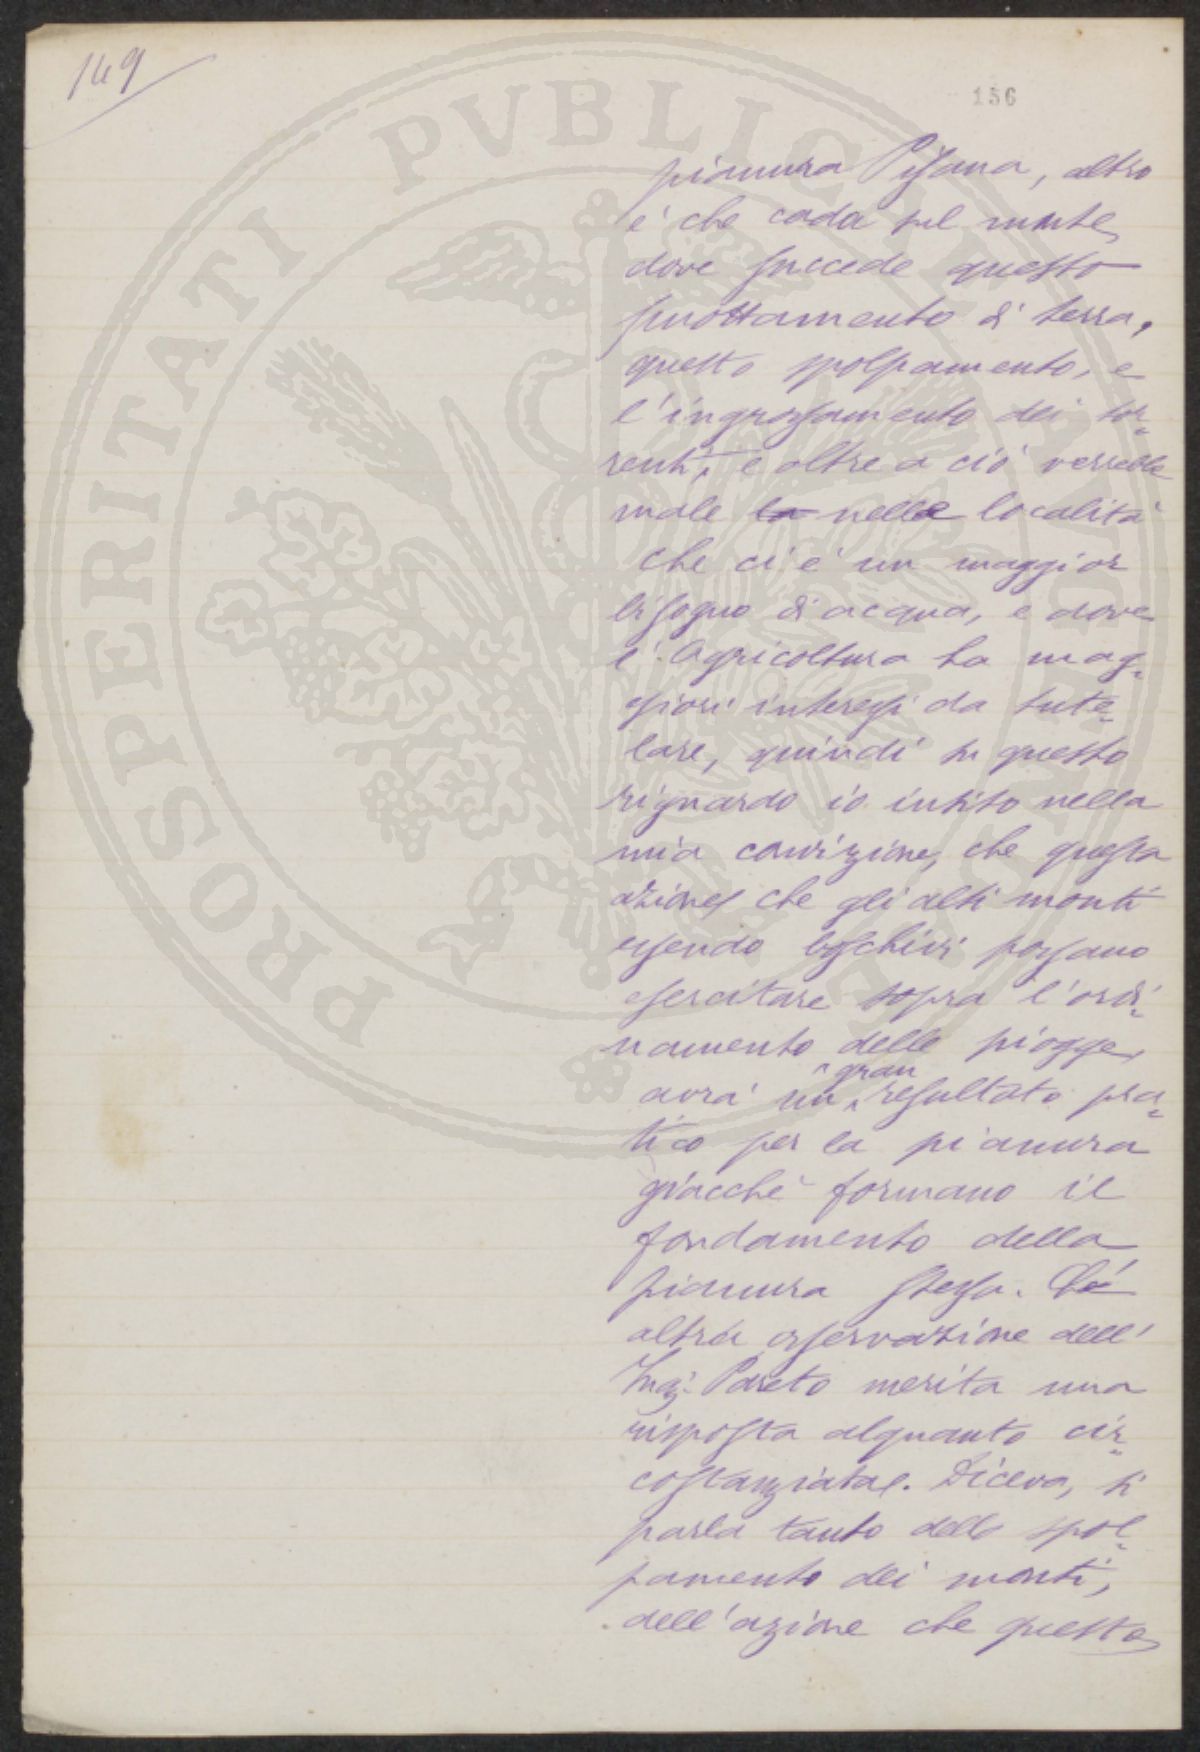 149
156
pianura Pisana, altro
è che cada sul monte,
dove succede questo
smottamento di terra,
questo spolpamento, e
l'ingrossamento dei tor-
renti, e oltre a ciò verrebbe
male la nelle località
che ci è un maggior
bisogno di acqua, e dove
l'Agricoltura ha mag-
giori interessi da tute-
lare, quindi su questo
riguardo io insisto nella
mia convizione, che questa
azione che gli alti monti
essendo boschivi possano
esercitare sopra l'ordi-
namento delle piogge,
avrà un gran resultato pra-
tico per la pianura
giacchè formano il
fondamento della
pianura stessa.
altra osservazione dell'
Ing: Pareto merita una
risposta alquanto cir-
costanziata. Diceva, si
parla tanto dello spol-
pamento dei monti,
dell'azione che questo
PROSPERITATI PVBLICAE